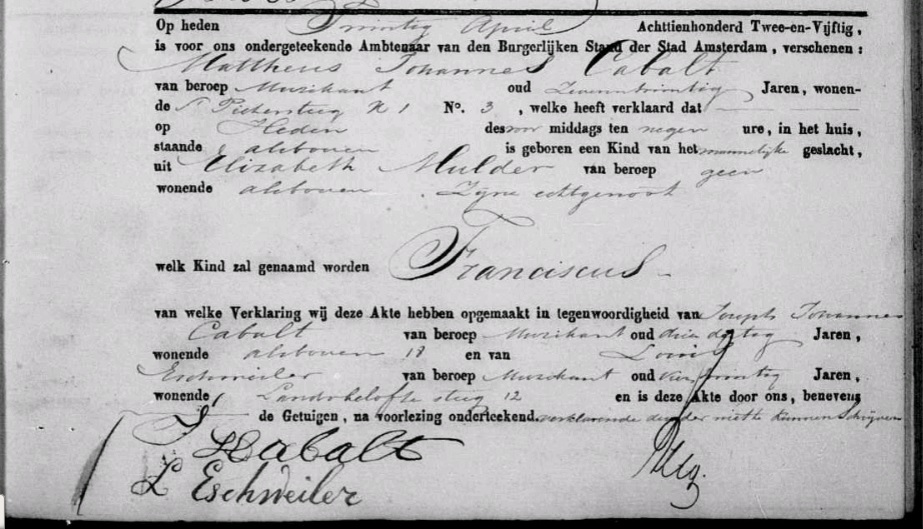 Op heden Twintig April Achttienhonderd Twee-en-Vijftig,
is voor ons ondergeteekende Ambtenaar van den Burgerlijken Stand der Stad Amsterdam, verschenen:
Mattheus Johannes Cabalt
van beroep Muzikant oud Zevenentwintig Jaren, wonen-
de Pietensteeg K 1 No. 3, welke heeft verklaard dat
op Heden des voor middags ten negen ure, in het huis,
staande alsboven is geboren een Kind van het mannelijke geslacht,
uit Elizabeth Mulder van beroep geen
wonende alsboven Zijne echtgenoot
welk Kind zal genaamd worden Franciscus
van welke Verklaring wij deze Akte hebben opgemaakt in tegenwoordigheid van Joseph Johannes
Cabalt van beroep Muzikant oud drie dertig Jaren,
wonende alsboven 18 en van Louis
Eschweiler van beroep Muzikant oud Jaren,
wonende steeg 12 en is deze Akte door ons, benevens
de Getuigen, na voorlezing onderteekend. verklarende de vader niet te kunnen Schrijven
Cabalt
L Eschweiler